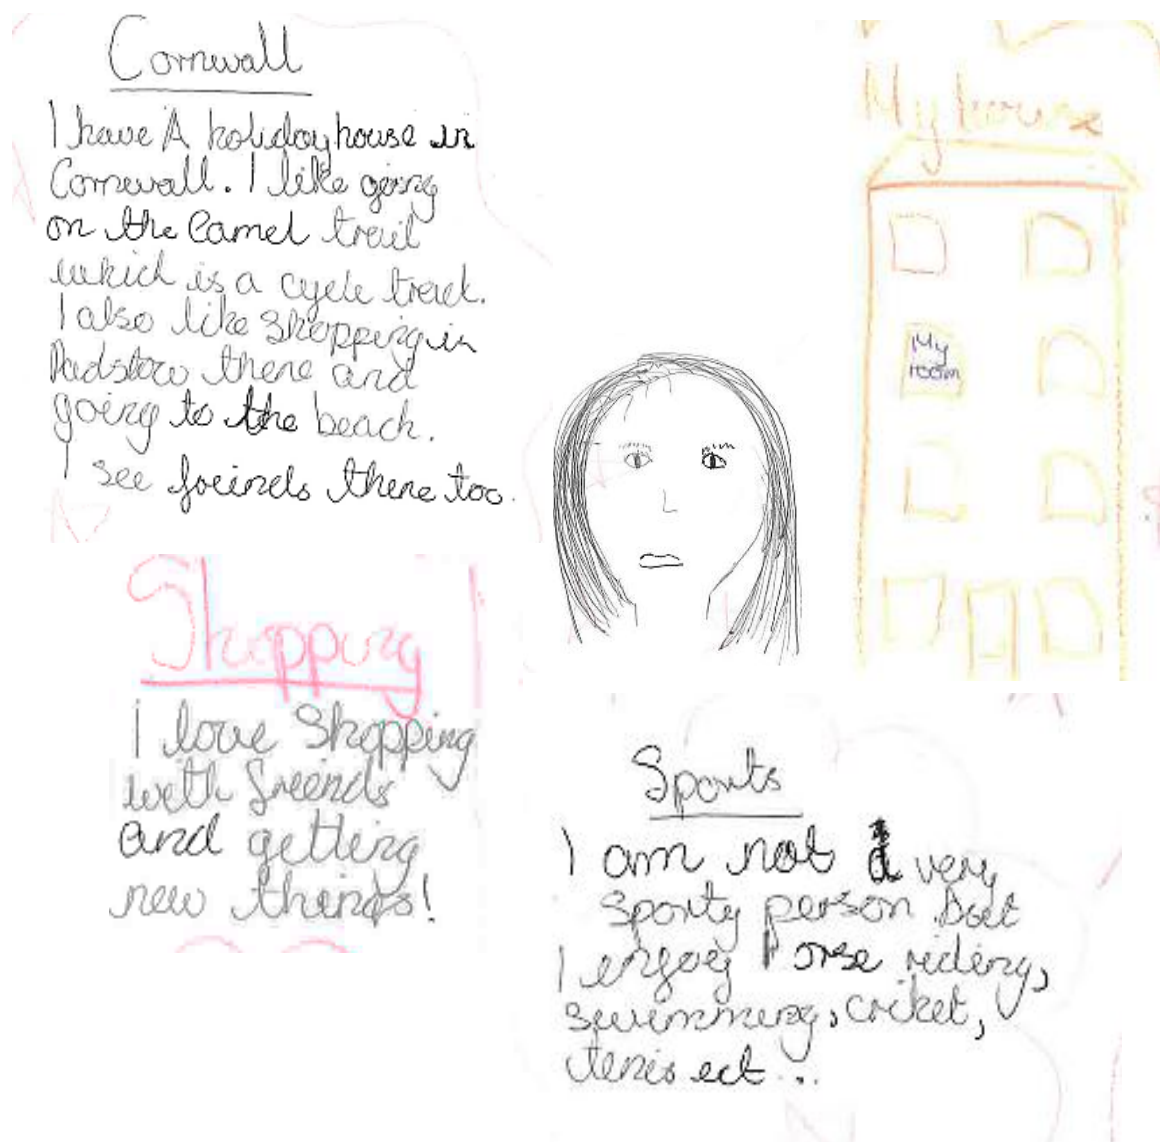 Cornwall
I have A holiday house in
Cornwall. I like going
on the Camel trail
which is a cycle trail.
I also like shopping in
Padstow there and
going to the beach.
I see freinds there too.
My house
My
room
Shopping
I love Shopping
with freinds
and getting
new things!
Sports
I am not a very
sporty person but
I enjoy Horse riding,
swimming, criket,
tenis ect...